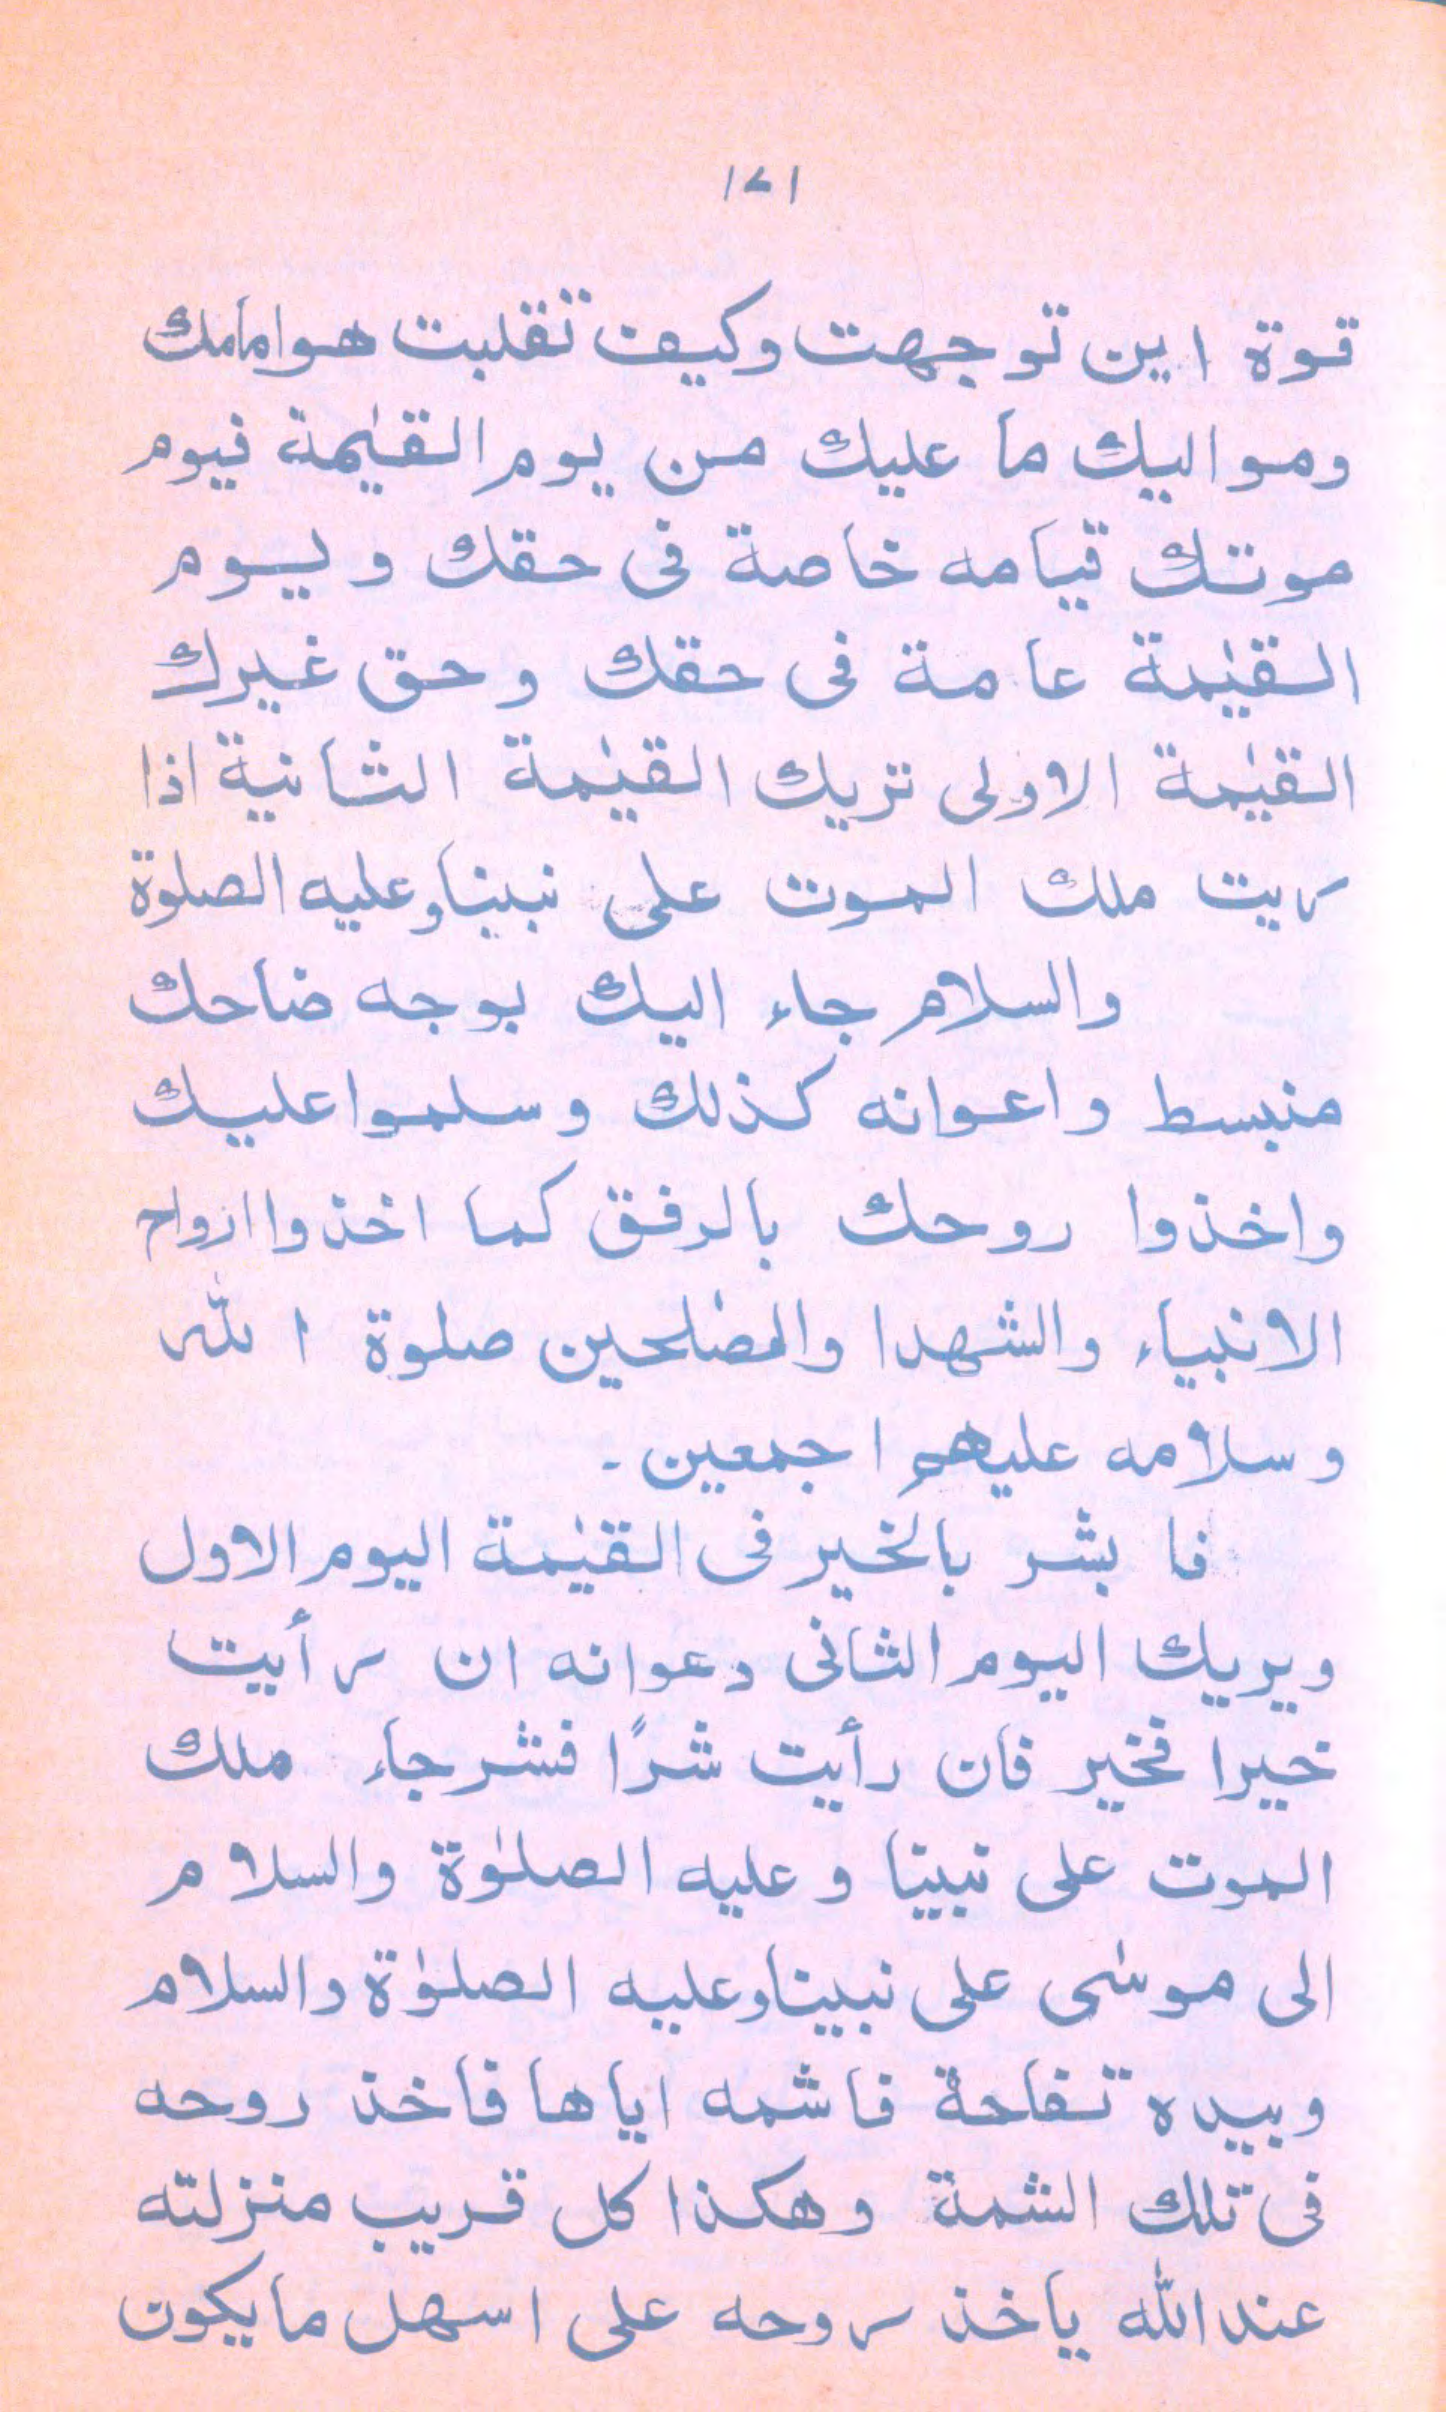 ١٧١
قوة اين توجهت وكيف تقلبت هوامامك
ومواليك ما عليك من يوم القيٰمة فيوم
موتك قيامه خاصة فى حقك ويوم
القيٰمة عامة فى حقك وحق غيرك
القيٰمة الاولى تريك القيٰمة الثانية اذا
ريت ملك الموت على نبينا وعليه الصلوة
والسلام جاء اليك بوجه ضاحك
منبسط واعوانه كذلك وسلموا عليك
واخذوا روحك بالرفق كما اخذوا ارواح
الانبياء والشهدا والصٰلحين صلوة الله
وسلامه عليهم اجمعين۔
فا بشر بالخير فى القيٰمة اليوم الاول
ويريك اليوم الثانى وعوانه ان رأيت
خيرا فخير فان رأيت شرًا فشر جاء ملك
الموت على نبينا وعليه الصلوٰة والسلام
الى موسٰى على نبينا وعليه الصلوٰة والسلام
وبيده تفاحة فاشمه اياها فاخذ روحه
فى تلك الشمة وهكذا كل قريب منزلته
عند الله ياخذ روحه على اسهل ما يكون